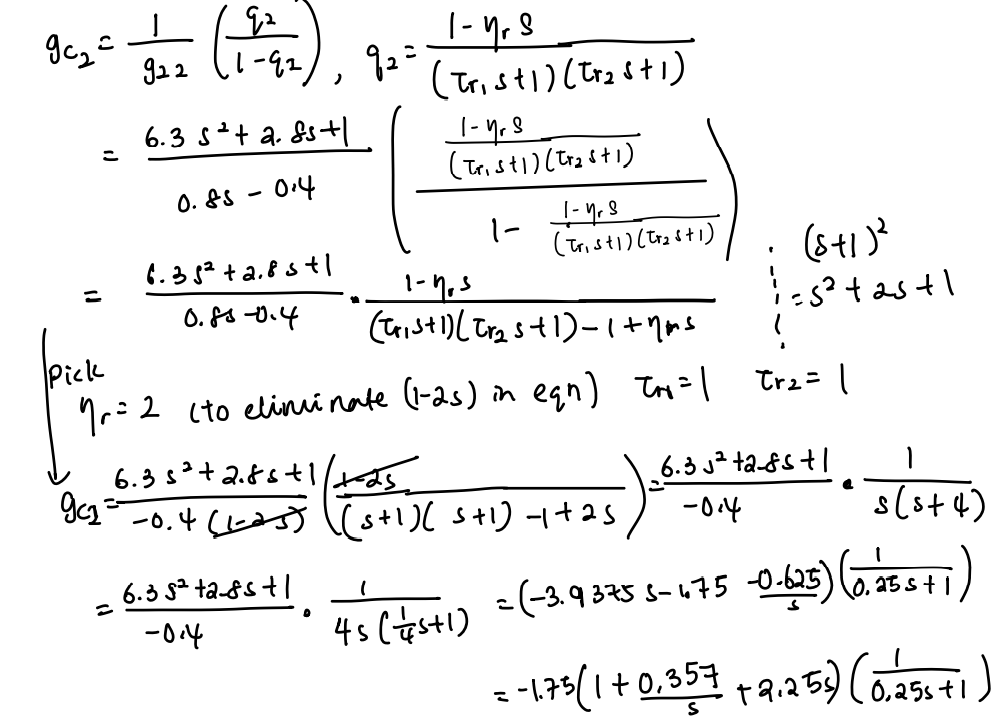 g_{c2} = \frac{1}{g_{22}} \left( \frac{q_2}{1-q_2} \right), q_2 = \frac{1-η_r s}{(τ_{r1} s+1)(τ_{r2} s+1)}
= \frac{6.3 s^2 + 2.8s+1}{0.8s - 0.4} \left( \frac{\frac{1-η_r s}{(τ_{r1} s+1)(τ_{r2} s+1)}}{1 - \frac{1-η_r s}{(τ_{r1} s+1)(τ_{r2} s+1)}} \right)
(s+1)^2
= s^2 + 2s + 1
= \frac{6.3s^2 + 2.8s+1}{0.8s-0.4} · \frac{1-η_r s}{(τ_{r1}s+1)(τ_{r2} s+1) - 1 + η_r s}
pick
η_r = 2 (to eliminate (1-2s) in eqn) τ_{r1} = 1 τ_{r2} = 1
g_{c2} = \frac{6.3 s^2 + 2.8s+1}{-0.4 (1-2s)} \left( \frac{1-2s}{(s+1)(s+1) -1+2s} \right) = \frac{6.3 s^2 + 2.8s+1}{-0.4} · \frac{1}{s(s+4)}
= \frac{6.3 s^2 + 2.8s+1}{-0.4} · \frac{1}{4s(\frac{1}{4}s+1)} = (-3.9375 s - 1.75 \frac{-0.625}{s}) (\frac{1}{0.25s+1})
= -1.75 (1 + \frac{0.357}{s} + 2.25s) (\frac{1}{0.25s+1})